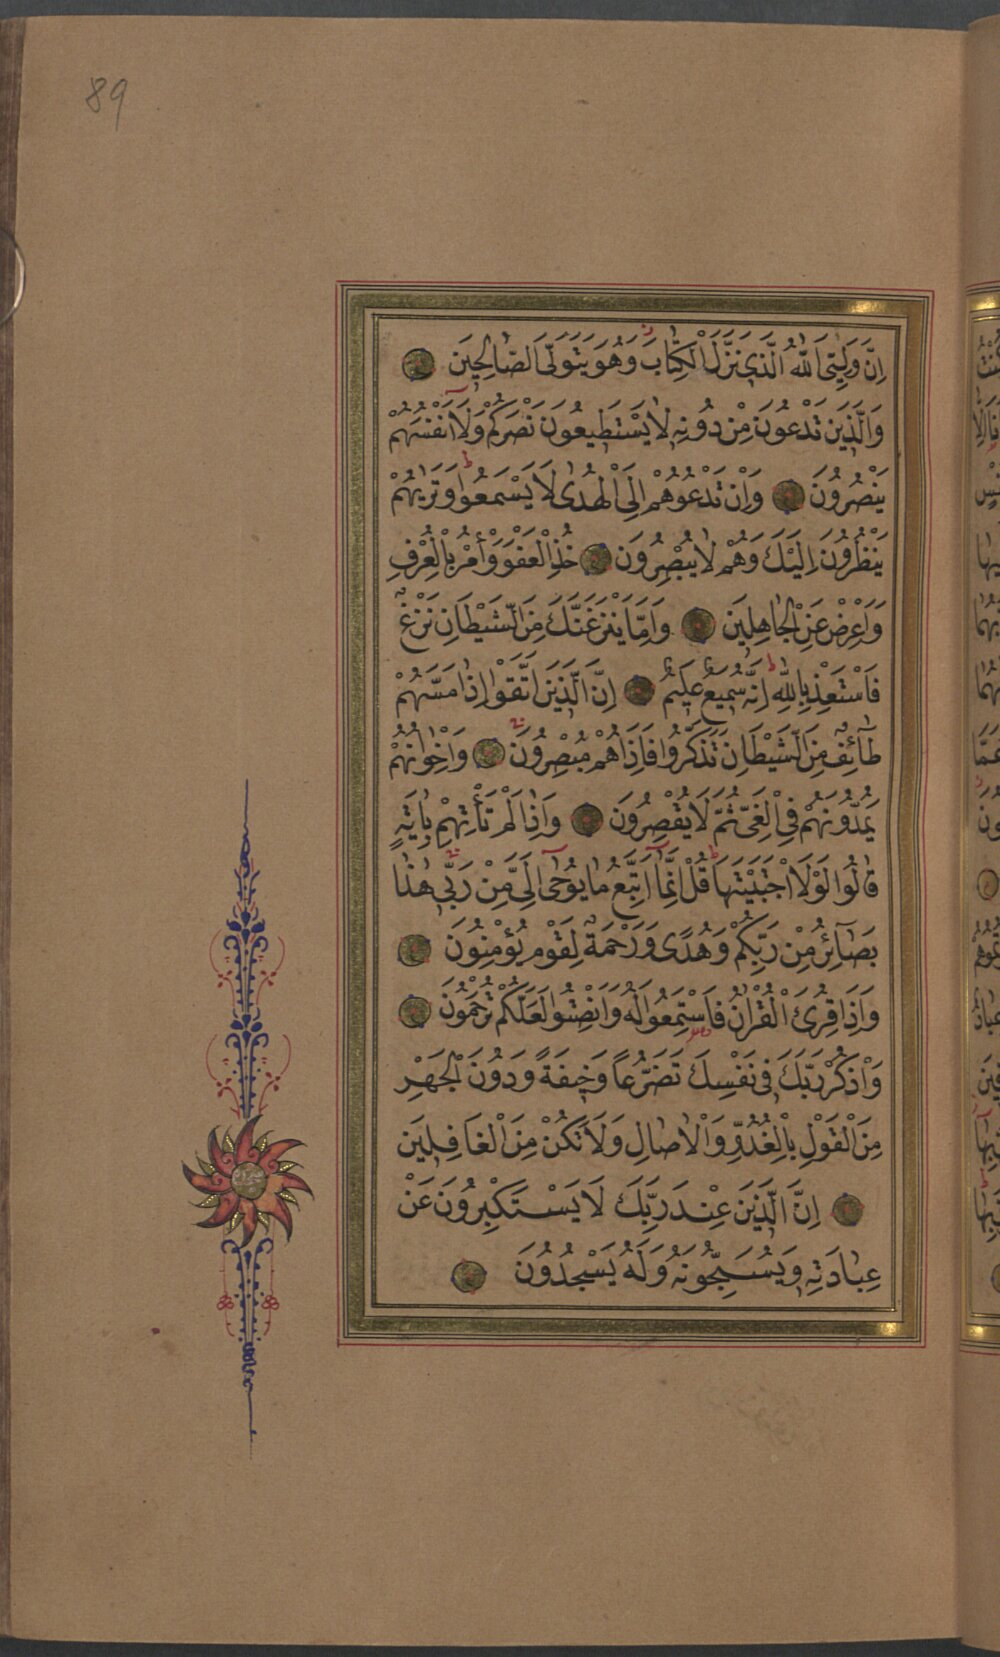 89
اِنَّ وَلِيِّىَ اللّٰهُ الَّذٖى نَزَّلَ الْكِتَابَ وَهُوَ يَتَوَلَّى الصَّالِحٖينَ
وَالَّذٖينَ تَدْعُونَ مِنْ دُونِهٖ لَا يَسْتَطٖيعُونَ نَصْرَكُمْ وَلَٓا اَنْفُسَهُمْ
يَنْصُرُونَ وَاِنْ تَدْعُوهُمْ اِلَى الْهُدٰى لَا يَسْمَعُوا وَتَرٰيهُمْ
يَنْظُرُونَ اِلَيْكَ وَهُمْ لَا يُبْصِرُونَ خُذِ الْعَفْوَ وَأْمُرْ بِالْعُرْفِ
وَاَعْرِضْ عَنِ الْجَاهِلٖينَ وَاِمَّا يَنْزَغَنَّكَ مِنَ الشَّيْطَانِ نَزْغٌ
فَاسْتَعِذْ بِاللّٰهِ اِنَّهُ سَمٖيعٌ عَلٖيمٌ اِنَّ الَّذٖينَ اتَّقَوْا اِذَا مَسَّهُمْ
طَٓائِفٌ مِنَ الشَّيْطَانِ تَذَكَّرُوا فَاِذَا هُمْ مُبْصِرُونَ وَاِخْوَانُهُمْ
يَمُدُّونَهُمْ فِى الْغَىِّ ثُمَّ لَا يُقْصِرُونَ وَاِذَا لَمْ تَأْتِهِمْ بِاٰيَةٍ
قَالُوا لَوْلَا اجْتَبَيْتَهَا قُلْ اِنَّمَٓا اَتَّبِعُ مَا يُوحٰٓى اِلَىَّ مِنْ رَبّٖى هٰذَا
بَصَٓائِرُ مِنْ رَبِّكُمْ وَهُدًى وَرَحْمَةٌ لِقَوْمٍ يُؤْمِنُونَ
وَاِذَا قُرِئَ الْقُرْاٰنُ فَاسْتَمِعُوا لَهُ وَاَنْصِتُوا لَعَلَّكُمْ تُرْحَمُونَ
وَاذْكُرْ رَبَّكَ فٖى نَفْسِكَ تَضَرُّعًا وَخٖيفَةً وَدُونَ الْجَهْرِ
مِنَ الْقَوْلِ بِالْغُدُوِّ وَالْاٰصَالِ وَلَا تَكُنْ مِنَ الْغَافِلٖينَ
اِنَّ الَّذٖينَ عِنْدَ رَبِّكَ لَا يَسْتَكْبِرُونَ عَنْ
عِبَادَتِهٖ وَيُسَبِّحُونَهُ وَلَهُ يَسْجُدُونَ